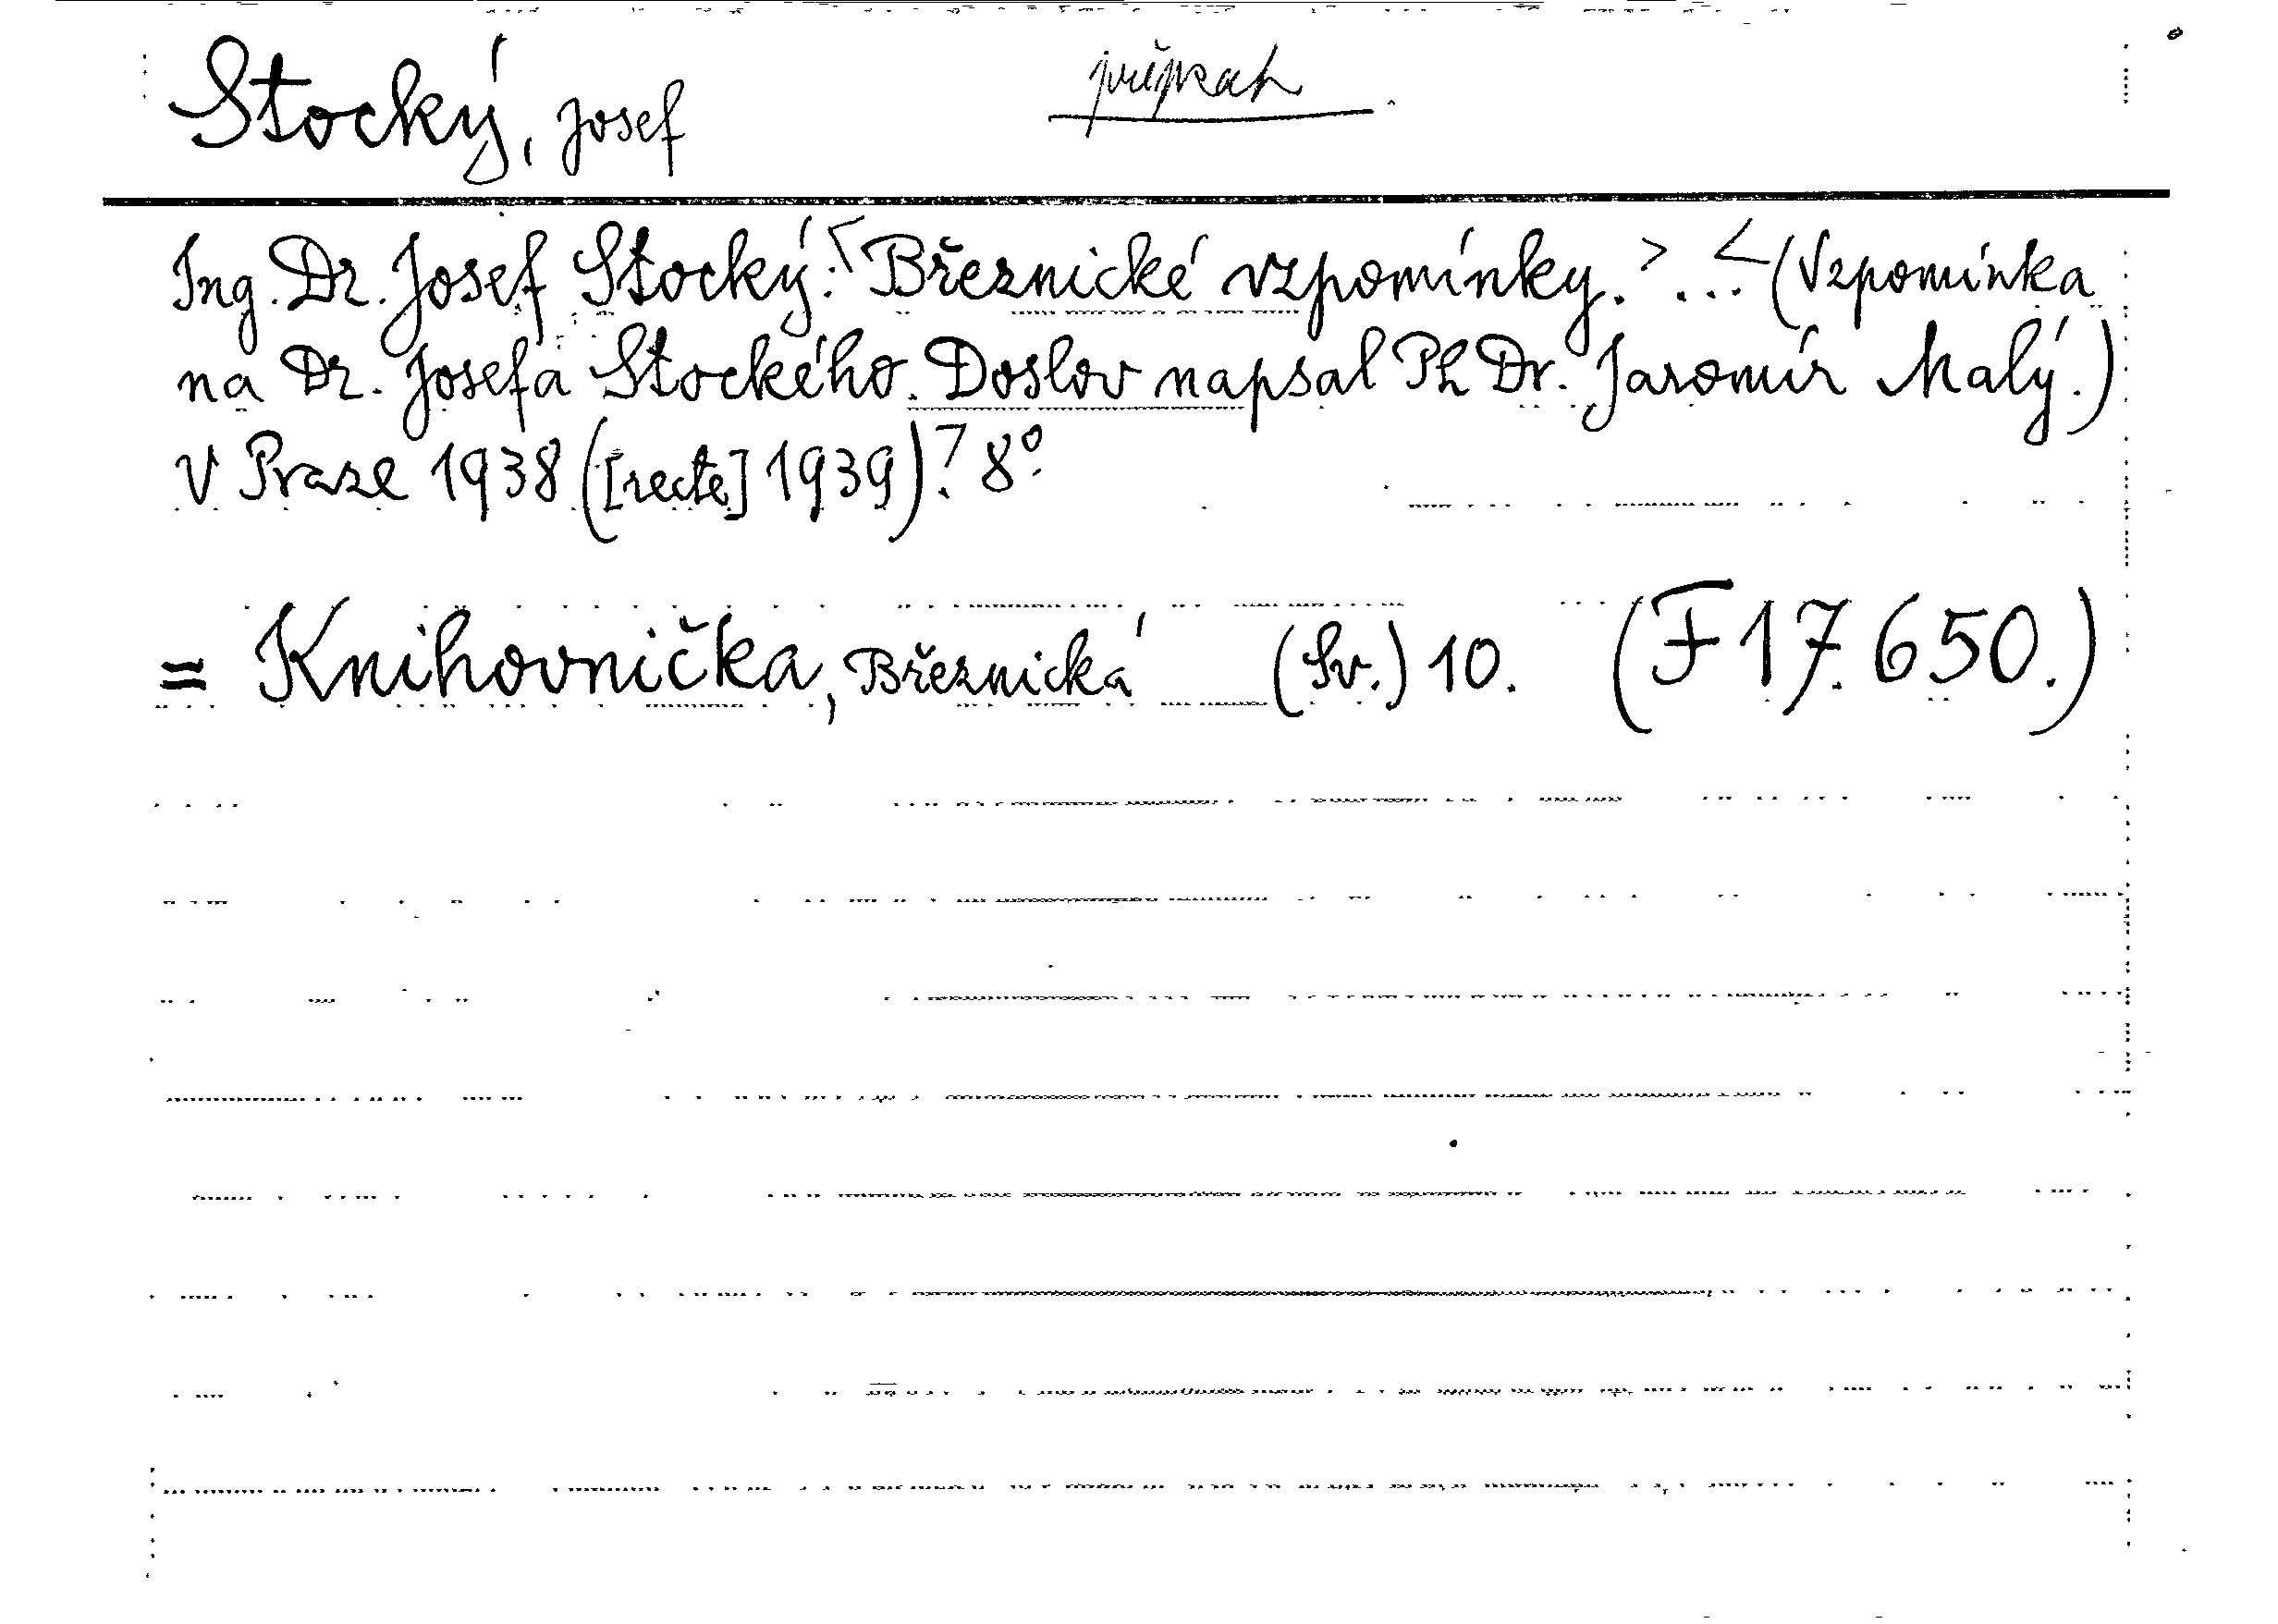 Stocký, Josef
Ing. Dr. Josef Stocký: Březnické vzpomínky. > ... < (Vzpomínka
na Dr. Josefa Stockého. Doslov napsal PhDr. Jaromír Malý.)
V Praze 1938 ([recte] 1939). 8°.
= Knihovnička, Březnická (Sv.) 10. (F 17.650.)